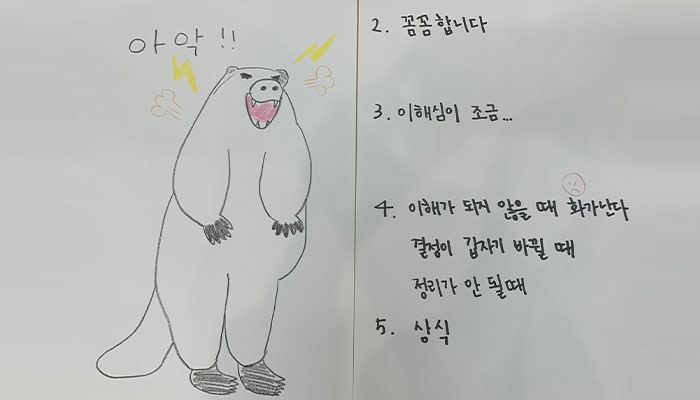 아악!!
2. 꼼꼼합니다
3. 이해심이 조금...
4. 이해가 되지 않을 때 화가난다
결정이 갑자기 바뀔 때
정리가 안 될때
5. 상식